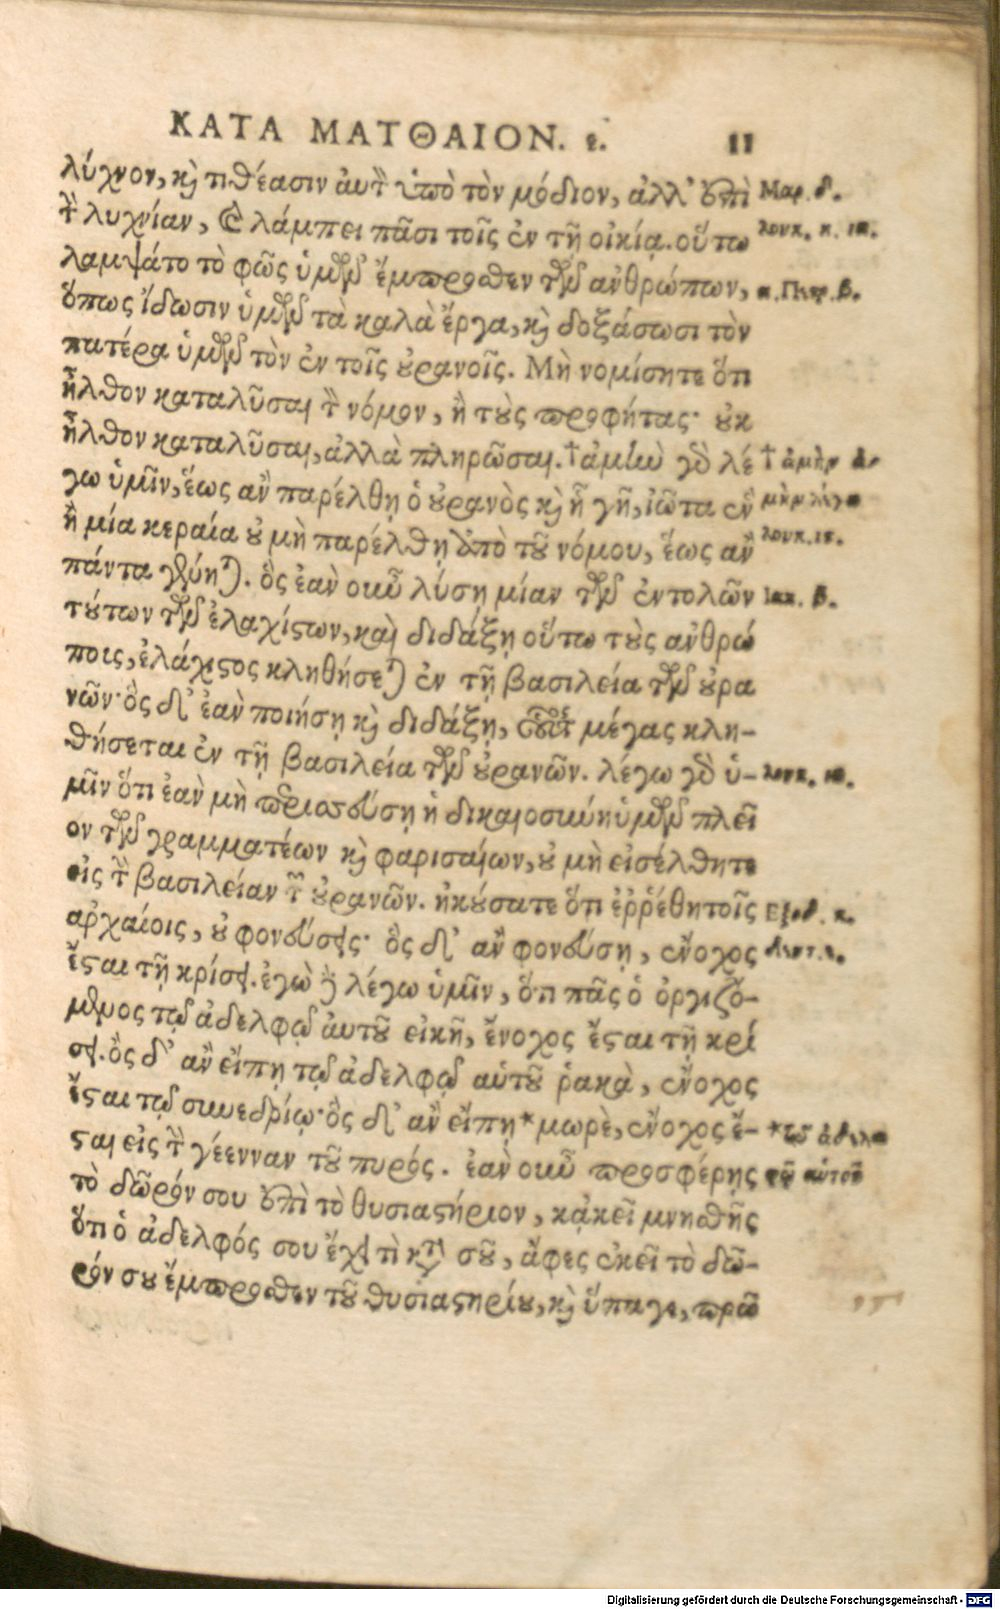 ΚΑΤΑ ΜΑΤΘΑΙΟΝ. ε. 11
λύχνον, κỳ τιθέασιν ἀυτὸν ὑπὸ τὸν μόδιον, ἀλλ' ἐπὶ Μαρ. δ.
τὴν λυχνίαν, καὶ λάμπει πᾶσι τοῖς ἐν τῇ οἰκίᾳ. οὕτω λουκ. η. ια.
λαμψάτο τὸ φῶς ὑμῶν ἔμπροσθεν τῶν ἀνθρώπων, α. Πετρ. β.
ὅπως ἴδωσιν ὑμῶν τὰ καλὰ ἔργα, καὶ δοξάσωσι τὸν
πατέρα ὑμῶν τὸν ἐν τοῖς οὐρανοῖς. Μὴ νομίσητε ὅτι
ἦλθον καταλῦσαι τὸν νόμον, ἢ τοὺς προφήτας· οὐκ
ἦλθον καταλῦσαι, ἀλλὰ πληρῶσαι. †ἀμὴν γὰρ λέ † ἀμὴν ἀ-
γω ὑμῖν, ἕως ἂν παρέλθῃ ὁ οὐρανὸς καὶ ἡ γῆ, ἰῶτα ἓν μὴν λέγω
ἢ μία κεραία οὐ μὴ παρέλθῃ ἀπὸ τοῦ νόμου, ἕως ἂν λουκ. ις.
πάντα γένηται. ὃς ἐὰν οὖν λύσῃ μίαν τῶν ἐντολῶν Ιακ. β.
τούτων τῶν ἐλαχίστων, καὶ διδάξῃ οὕτω τοὺς ἀνθρώ
ποις, ἐλάχιστος κληθήσεται ἐν τῇ βασιλεία τῶν οὐρα
νῶν· ὃς δ' ἐὰν ποιήσῃ καὶ διδάξῃ, οὗτος μέγας κλη-
θήσεται ἐν τῇ βασιλεία τῶν οὐρανῶν. λέγω γὰρ ὑ- λουκ. ια.
μῖν ὅτι ἐὰν μὴ περισσεύσῃ ἡ δικαιοσύνη ὑμῶν πλεῖ
ον τῶν γραμματέων καὶ φαρισαίων, οὐ μὴ εἰσέλθητε
εἰς τὴν βασιλείαν τῶν οὐρανῶν. ἠκούσατε ὅτι ἐῤῥέθη τοῖς Εξοδ. κ.
ἀρχαίοις, οὐ φονεύσεις· ὃς δ' ἂν φονεύσῃ, ἔνοχος Δευτ. ε.
ἔσται τῇ κρίσει. ἐγὼ δὲ λέγω ὑμῖν, ὅτι πᾶς ὁ ὀργιζό-
μενος τῷ ἀδελφῷ ἀυτοῦ εἰκῆ, ἔνοχος ἔσται τῇ κρί
σει. ὃς δ' ἂν εἴπῃ τῷ ἀδελφῷ αὑτοῦ ῥακὰ, ἔνοχος
ἔσται τῷ συνεδρίῳ· ὃς δ' ἂν εἴπῃ *μωρὲ, ἔνοχος ἔ- *τῷ ἀδελ-
σται εἰς τὴν γέενναν τοῦ πυρός. ἐὰν οὖν προσφέρῃς φῷ αὑτοῦ
τὸ δῶρόν σου ἐπὶ τὸ θυσιαστήριον, κᾀκεῖ μνηθῇς
ὅτι ὁ ἀδελφός σου ἔχει τὶ κατὰ σοῦ, ἄφες ἐκεῖ τὸ δῶ-
ρόν σου ἔμπροσθεν τοῦ θυσιαστηρίου, καὶ ὕπαγε, πρῶ
Digitalisierung gefördert durch die Deutsche Forschungsgemeinschaft - DFG